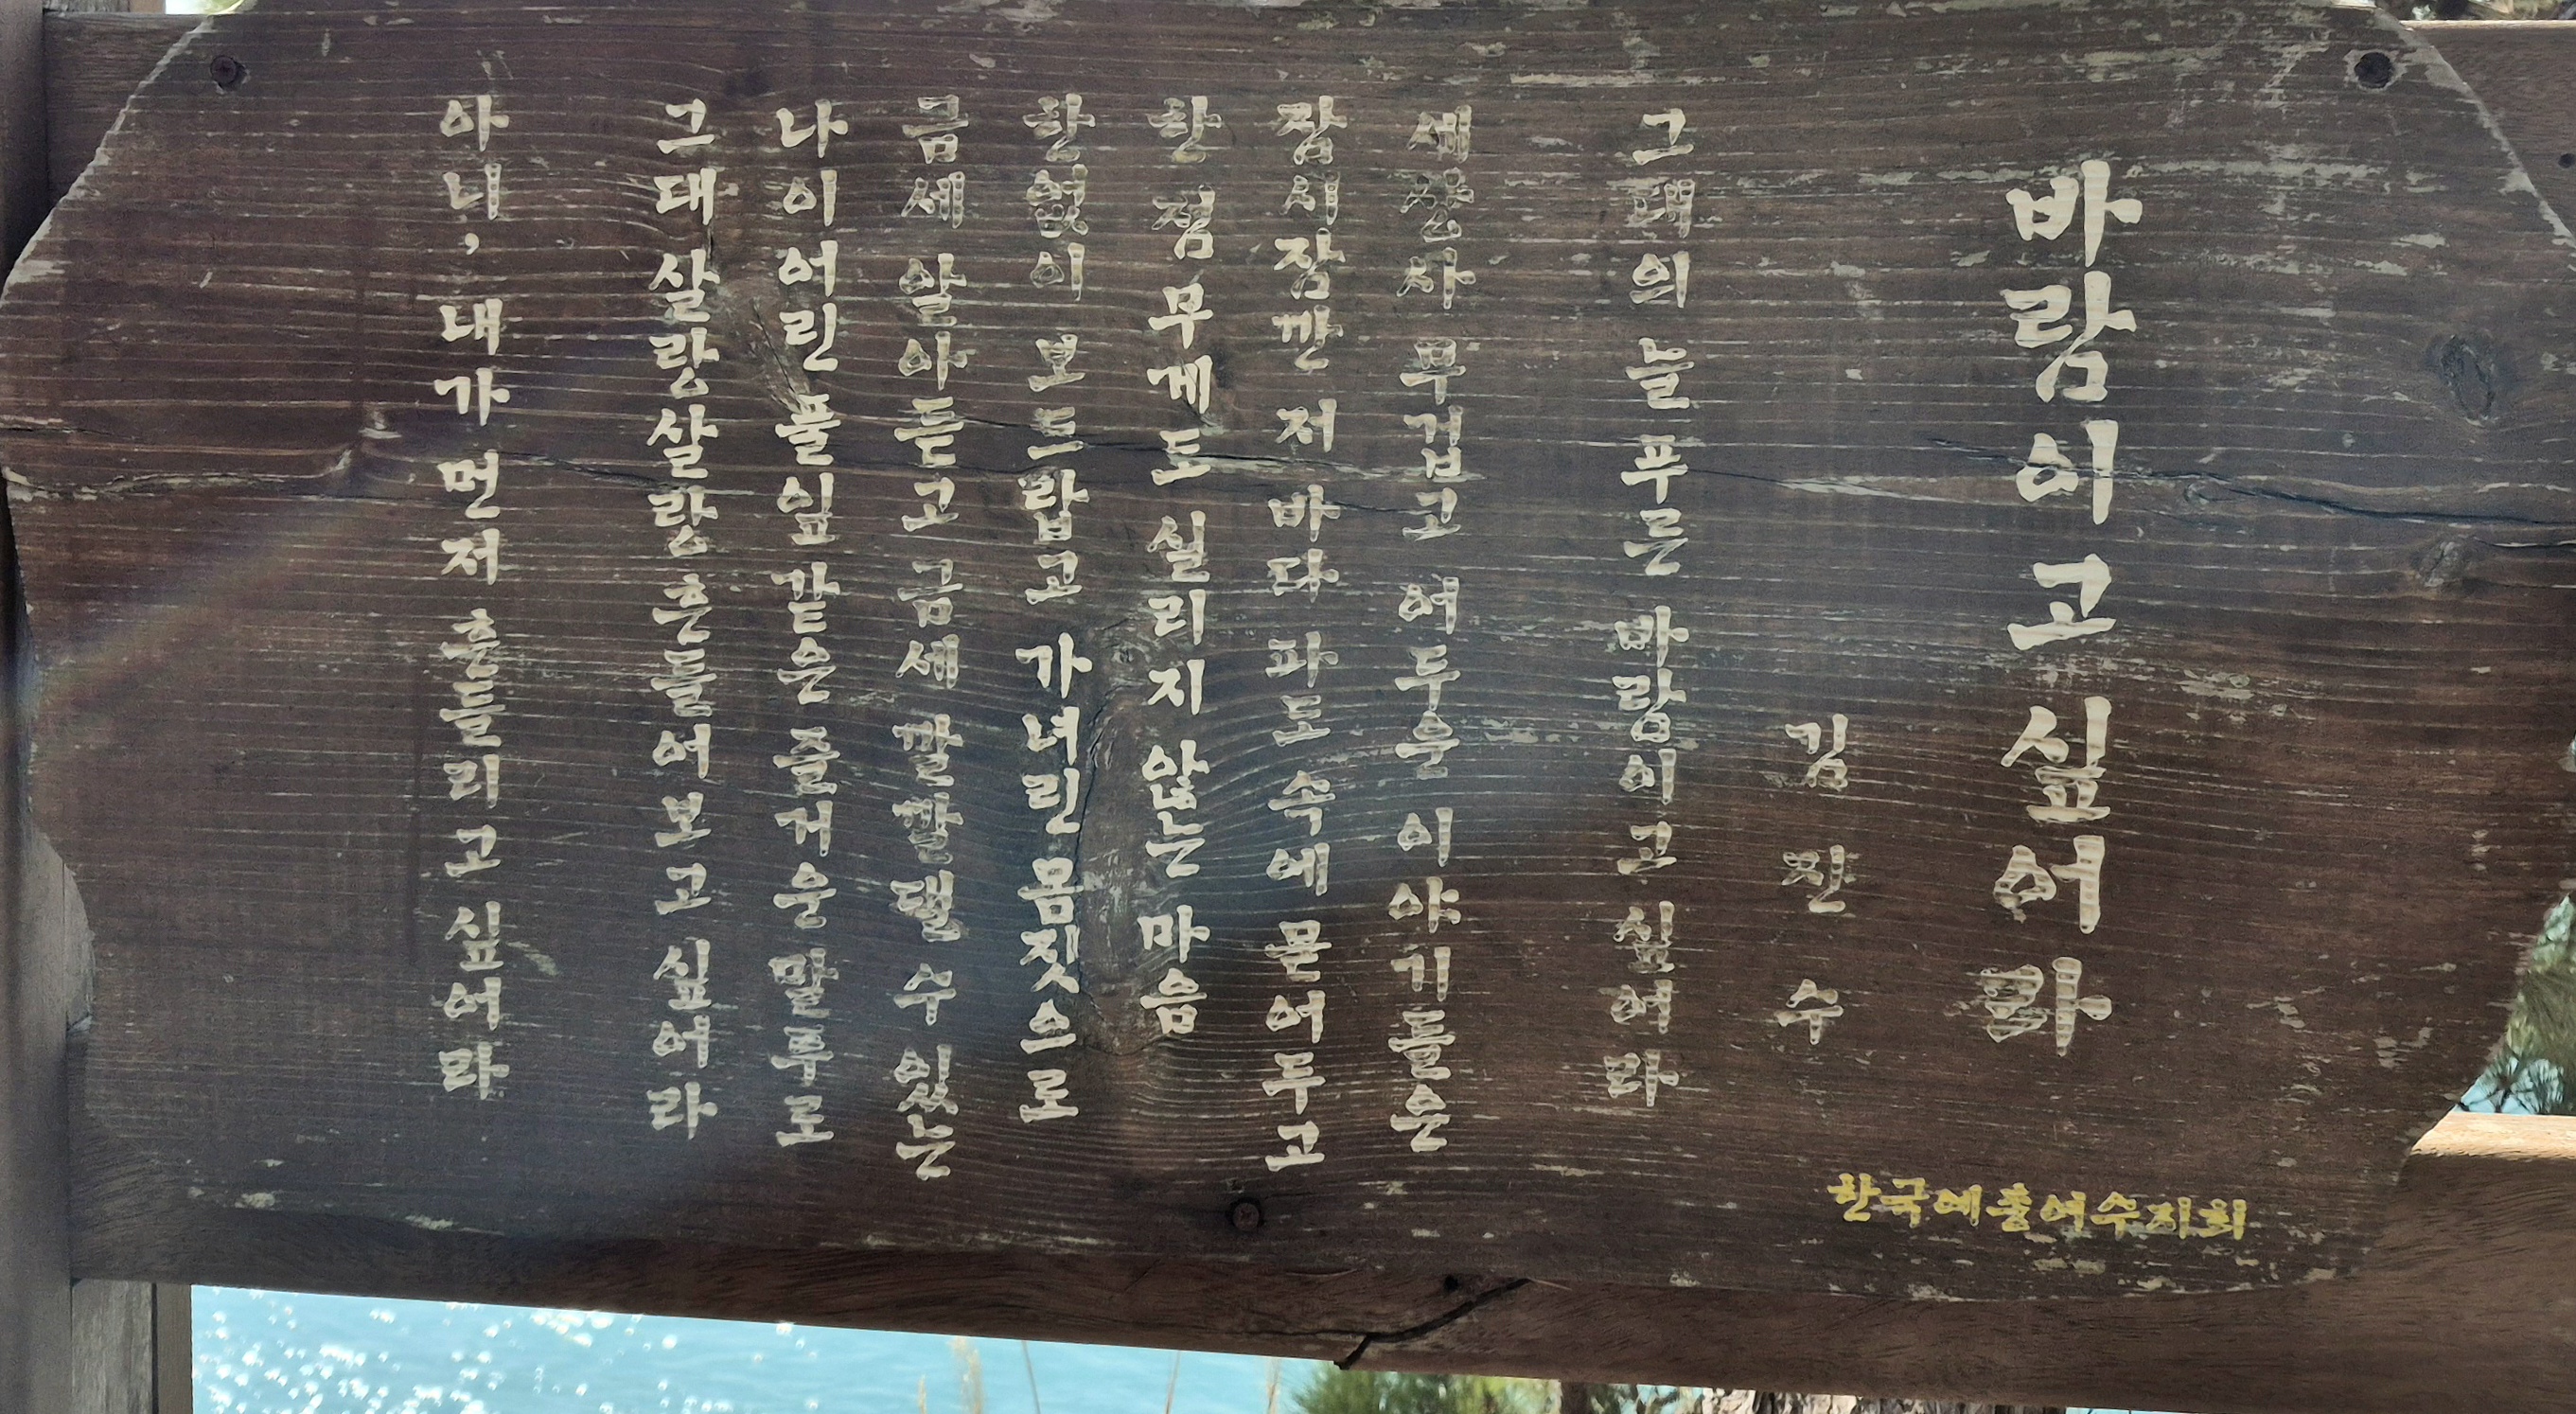 바람이고 싶어라
김 진 수
그대의 늘 푸른 바람이고 싶어라
세상사 무겁고 어두운 이야기들은
잠시잠깐 저 바다 파도 속에 묻어두고
한 점 무게도 실리지 않는 마음
한없이 보드랍고 가녀린 몸짓으로
금세 알아듣고 금세 깔깔댈 수 있는
나이어린 풀잎 같은 즐거운 말투로
그대 살랑살랑 흔들어 보고 싶어라
아니, 내가 먼저 흔들리고 싶어라
한국예총여수지회